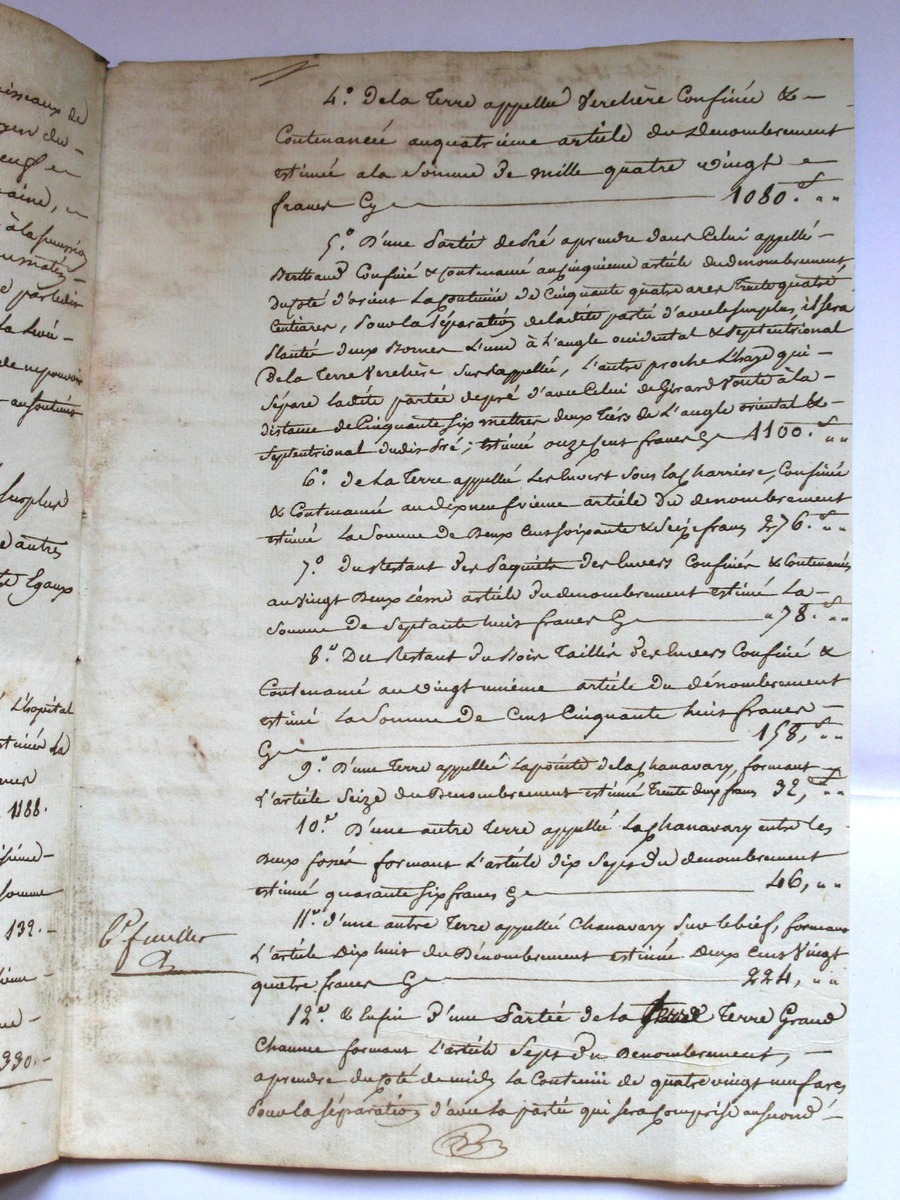 isseaux de
yen du-
aine, 
à la
partie
La
de ne pouvoir
Surplus
autres
Egaux
L'hopital
estimée la
1188.
Somme
139.-
330.-
4.º De la Terre appellée Verchère Confinée &-
Contenancée au quatrième article du denombrement
estimée a la Somme de mille quatre vingt
francs Cy 1080. "
5.º D'une Partie de Pré aprendre dans Celui appellé-
Berthaud Confiné & Contenancé au Cinquieme article du denombrement,
du Coté d'orient La Contenüe de Cinquante quatre ares Trente quatre
Centiares, Pour La Séparation de la dite partie d'avec le Surplus, il Sera
Planté deux Bornes L'une à L'angle occidental & Septentrional
De la Terre Verchère Surdappellée, L'autre proche L'haye qui-
Sépare ladite partie de pré d'avec Celui de Girard Voute à la-
distance de Cinquante Six mettres deux Tiers de L'angle oriental &-
Septentrional dudit Pré; Estimé onze Cent francs Cy 1100. "
6.º de La Terre appellée Les Envers Sous la Charriere, Confinée
& Contenancée au dix neufvieme article du denombrement
estimée La Somme de Deux Cent Soixante & Seize francs 276. "
7.º du Restant des Paquiers des Envers Confinés & Contenancés
au Vingt Deux Léme article du denombrement estimé La-
Somme de Septante huit francs Cy " 78. "
8.º Du Restant du Bois Taillis des Envers Confiné &
Contenancé au vingt unième article du dénombrement
estimé La Somme de Cent Cinquante huit francs-
Cy 158, "
9.º D'une Terre appellée La pointe de la Chanavary, formant
L'article Seize du Denombrement estimée Trente deux francs 32, "
10.º D'une autre Terre appellée La Chanavary entre les-
Deux fossés formant L'article dix Sept du denombrement
estimée quarante Six francs Cy 46, "
11.º d'une autre Terre appellée Chanavary Sur le bief, formant
L'article Dix huit du Dénombrement estimée Deux Cent Vingt
quatre francs Cy 224, "
12.º & Enfin D'une Partie de la Terre Grand
Chaume formant L'article Sept du Denombrement, -
aprendre du Coté de midy La Contenüe de quatre vingt neuf ares
Pour la Séparation d'avec La partie qui Sera Comprise au Second-